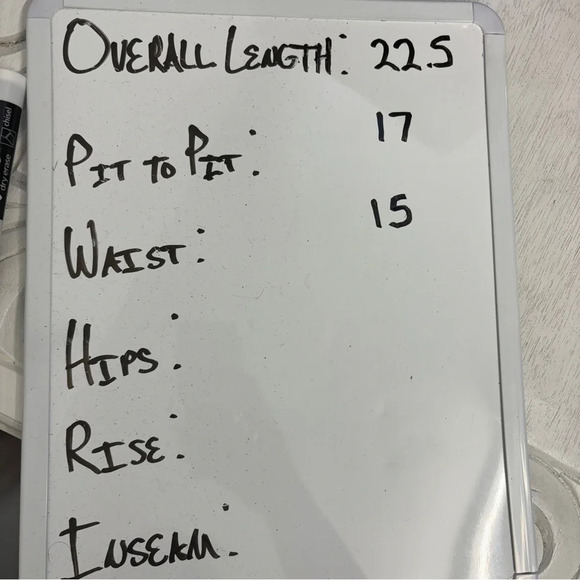 OVERALL LENGTH: 22.5
PIT TO PIT: 17
WAIST: 15
HIPS:
RISE:
INSEAM:
chisel
dry erase